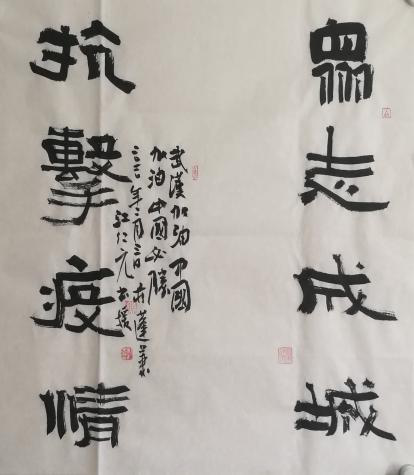 眾志成城
抗擊疫情
武漢加油中國
加油中國必勝
二〇二〇年二月三日於蓬萊
江仁元書